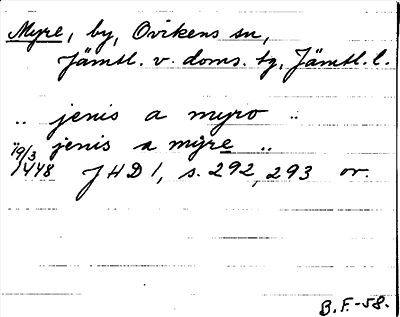 Myre, by, Ovikens sn,
Jämtl. v. doms. tg, Jämtl. l.
.. jenis a myro ..
.. jenis a myre ..
19/3 1448 JHD 1, s. 292, 293 or.
B.F.-58.